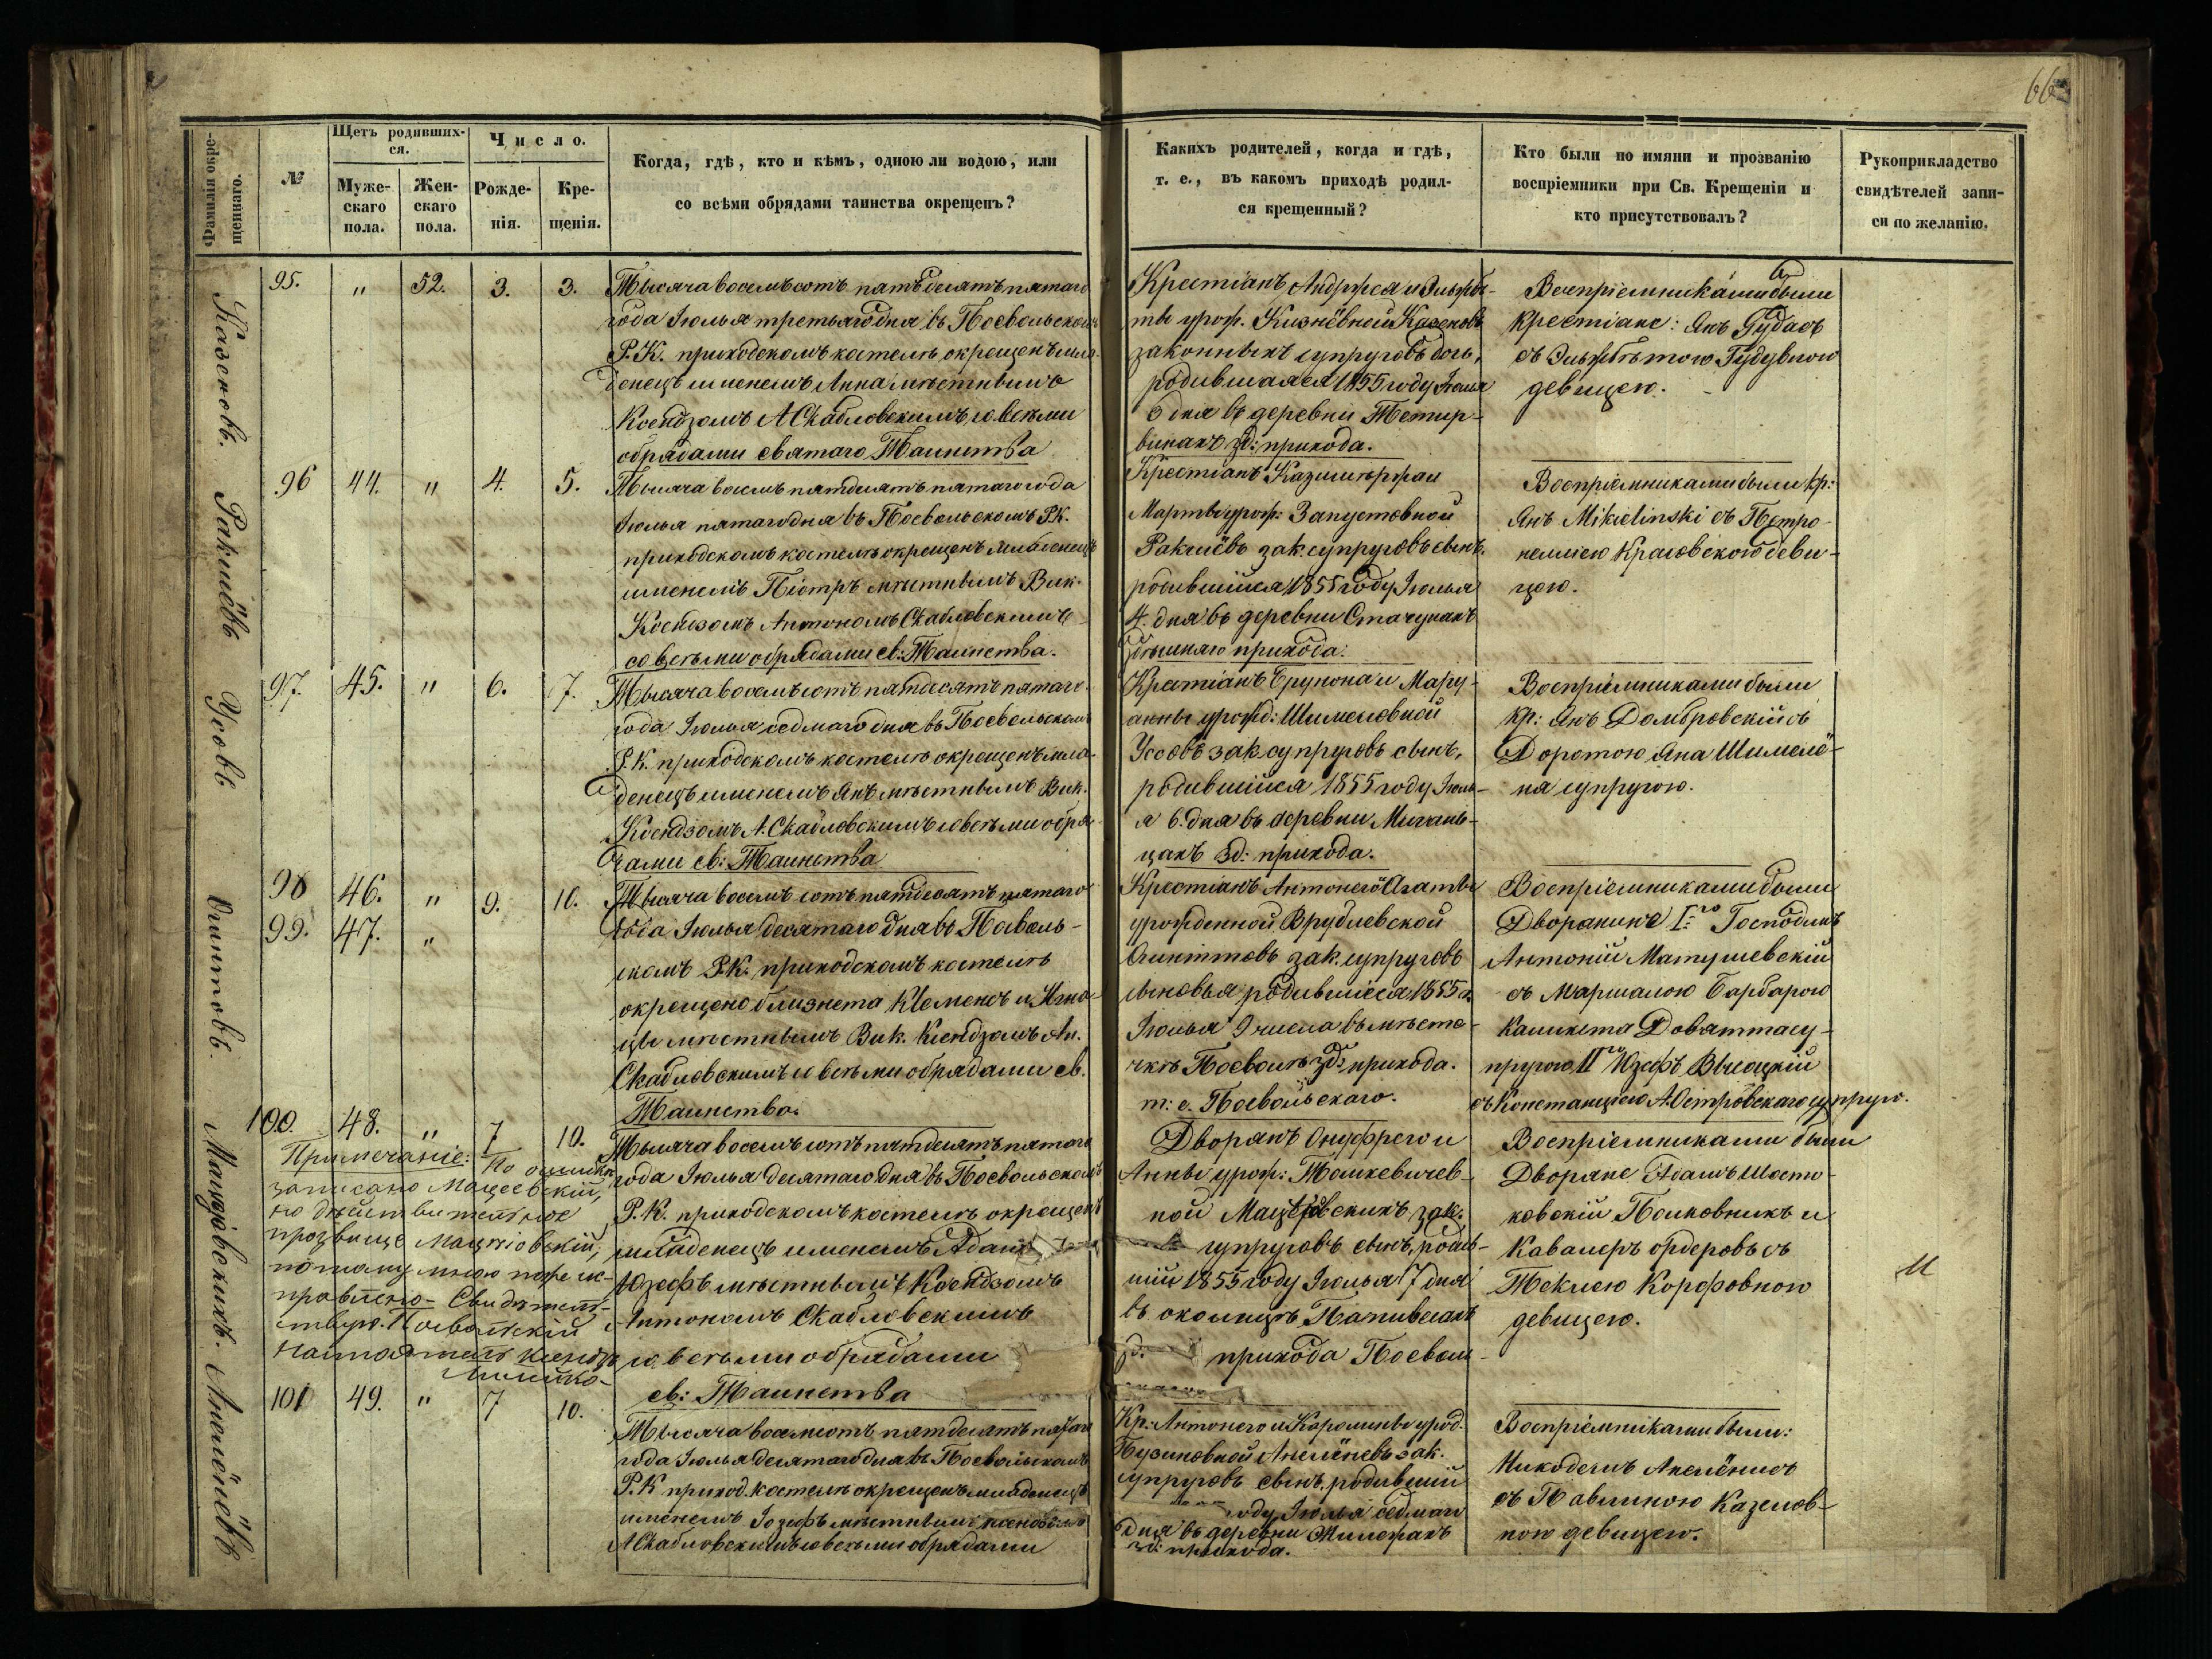 66
Фамилія окре-
щеннаго.
№
Щетъ родивших-
ся.
Муже-
скаго
пола.
Жен-
скаго
пола.
Число.
Рожде-
нія.
Кре-
щенія.
Когда, гдѣ, кто и кѣмъ, одною ли водою, или
со всѣми обрядами таинства окрещенъ?
Какихъ родителей, когда и гдѣ,
т. е., въ какомъ приходѣ родил-
ся крещенный?
Кто были по имяни и прозванію
воспріемники при Св. Крещеніи и
кто присутствовалъ?
Рукоприкладство
свидѣтелей запи-
си по желанію.
Казеновъ.
95. " 52. 3. 3.
Тысяча восемьсотъ пятьдесятъ пятаго
года Іюлья третьяго дня въ Посвольскомъ
Р.К. приходскомъ костелѣ окрещенъ мла-
денецъ именемъ Анна мѣстнымъ
Ксендзомъ А Скабловскимъ, со всѣми
обрядами святаго Таинства
Крестіанъ Андржея и Эльжбѣ-
ты урож. Кизнёвной Казеновъ
законныхъ супруговъ дочь,
родившаяся 1855 году Іюлья
3 дня въ деревни Тетир-
винахъ зд: прихода.
Воспріемниками были
крестіане: Янъ Гудасъ
съ Эльжбѣтою Гудувною
девицею.
Ракшёвъ
96 44. " 4. 5.
Тысяча восемь пятдесятъ пятаго года
Іюлья пятаго дня въ Посвольскомъ Р.К.
приходскомъ костелѣ окрещенъ младенецъ
именемъ Піотръ мѣстнымъ Вик.
Ксендзомъ Антономъ Скабловскимъ
со всѣми обрядами св: Таинства.
Крестіанъ Казимѣржа и
Марты урож: Запустовной
Ракшёвъ зак. супруговъ сынъ,
родившійся 1855 году Іюлья
4. дня въ деревни Стачунахъ
здѣшняго прихода:
Воспріемниками были кр:
Янъ Mikielinski съ Петро-
нелліею Краговскою деви-
цою.
Усовъ
97. 45. " 6. 7.
Тысяча восемьсотъ пятдесятъ пятаго
года Іюлья седмаго дня въ Посвольскомъ
Р.К. приходскомъ костелѣ окрещенъ мла-
денецъ именемъ Янъ мѣстнымъ Вик.
Ксендзомъ А. Скабловскимъ со всѣми обря-
дами св: Таинства
Крестіанъ Бруно­на и Мары-
анны урожд: Шимелёвной
Усовъ зак. супруговъ сынъ,
родившійся 1855 году Іюль-
я 6. дня въ деревни Мигань-
цахъ зд: прихода.
Воспріемниками были
кр: Янъ Домбровскій съ
Доротою Яна Шимелё-
на супругою.
Оинтовъ.
98 46. " 9. 10.
99. 47. "
Тысяча восемь сотъ пятдесятъ пятаго
года Іюлья десятаго дня въ Посволь-
скомъ Р.К. приходскомъ костелѣ
окрещено близнета Клеменсъ и Игна-
цы мѣстнымъ Вик. Ксендзомъ Ан.
Скабловскимъ со всѣми обрядами св.
Таинства.
Крестіанъ Антонего Агаты
урожденной Врублевской
Оинтовъ зак. супруговъ
сыновья родившіеся 1855 г.
Іюлья 9 числа въ мѣсте-
чкѣ Посволѣ зд: прихода.
т: е. Посвольскаго.
Воспріемниками были
Дворянине I.го Господинъ
Антоній Матушевскій
съ Маршалою Барбарою
Каликста Довяттасу-
пругою II го Юзефъ Высоцкій
съ Констанціею А. Островскаго супруго.
Мацѣёвскихъ.
100. 48. " 7 10.
Примечаніе: По ошибкѣ
записано Мацеевскій,
но действительное
прозвище Мацѣіовскій,
потому мною тоже ис-
правлено. Свидѣтель-
Тысяча восемь сотъ пятдесятъ пятаго
года Іюлья десятаго дня въ Посвольскомъ
Р.К. приходскомъ костелѣ окрещенъ
младенецъ именемъ Адамъ
Юзефъ мѣстнымъ Ксендзомъ
Антономъ Скабловскимъ
со всѣми обрядами
св: Таинства
Дворянъ Онуфрего и
Анны урож: Тошкевичев-
ной Мацѣёвскихъ зак.
супруговъ сынъ, родив-
шій 1855 году Іюлья 7 дня
въ околицѣ Папивесахъ
зд. прихода Посволь-
Воспріемниками были
Дворяне Адамъ Шост-
ковскій Полковникъ и
Кавалеръ ордеровъ съ
Теклею Корфовною
девицею.
Анелёнёвъ
101 49. " 7 10.
Тысяча восемсотъ пятдесятъ пятаго
года Іюлья десятаго дня въ Посвольскомъ
Р.К. приход. костелѣ окрещенъ младенецъ
именемъ Іозефъ мѣстнымъ ксендзомъ
А Скабловскимъ со всѣми обрядами
Кр: Антонего и Каролины урод.
Бузиновной Анелёнёвъ зак.
супруговъ сынъ, родившій
году Іюлья седмаго
дня въ деревни Милежахъ
зд: прихода.
Воспріемниками были:
Никодемъ Анелёнисъ
съ Павлиною Казенов-
ною девицею.